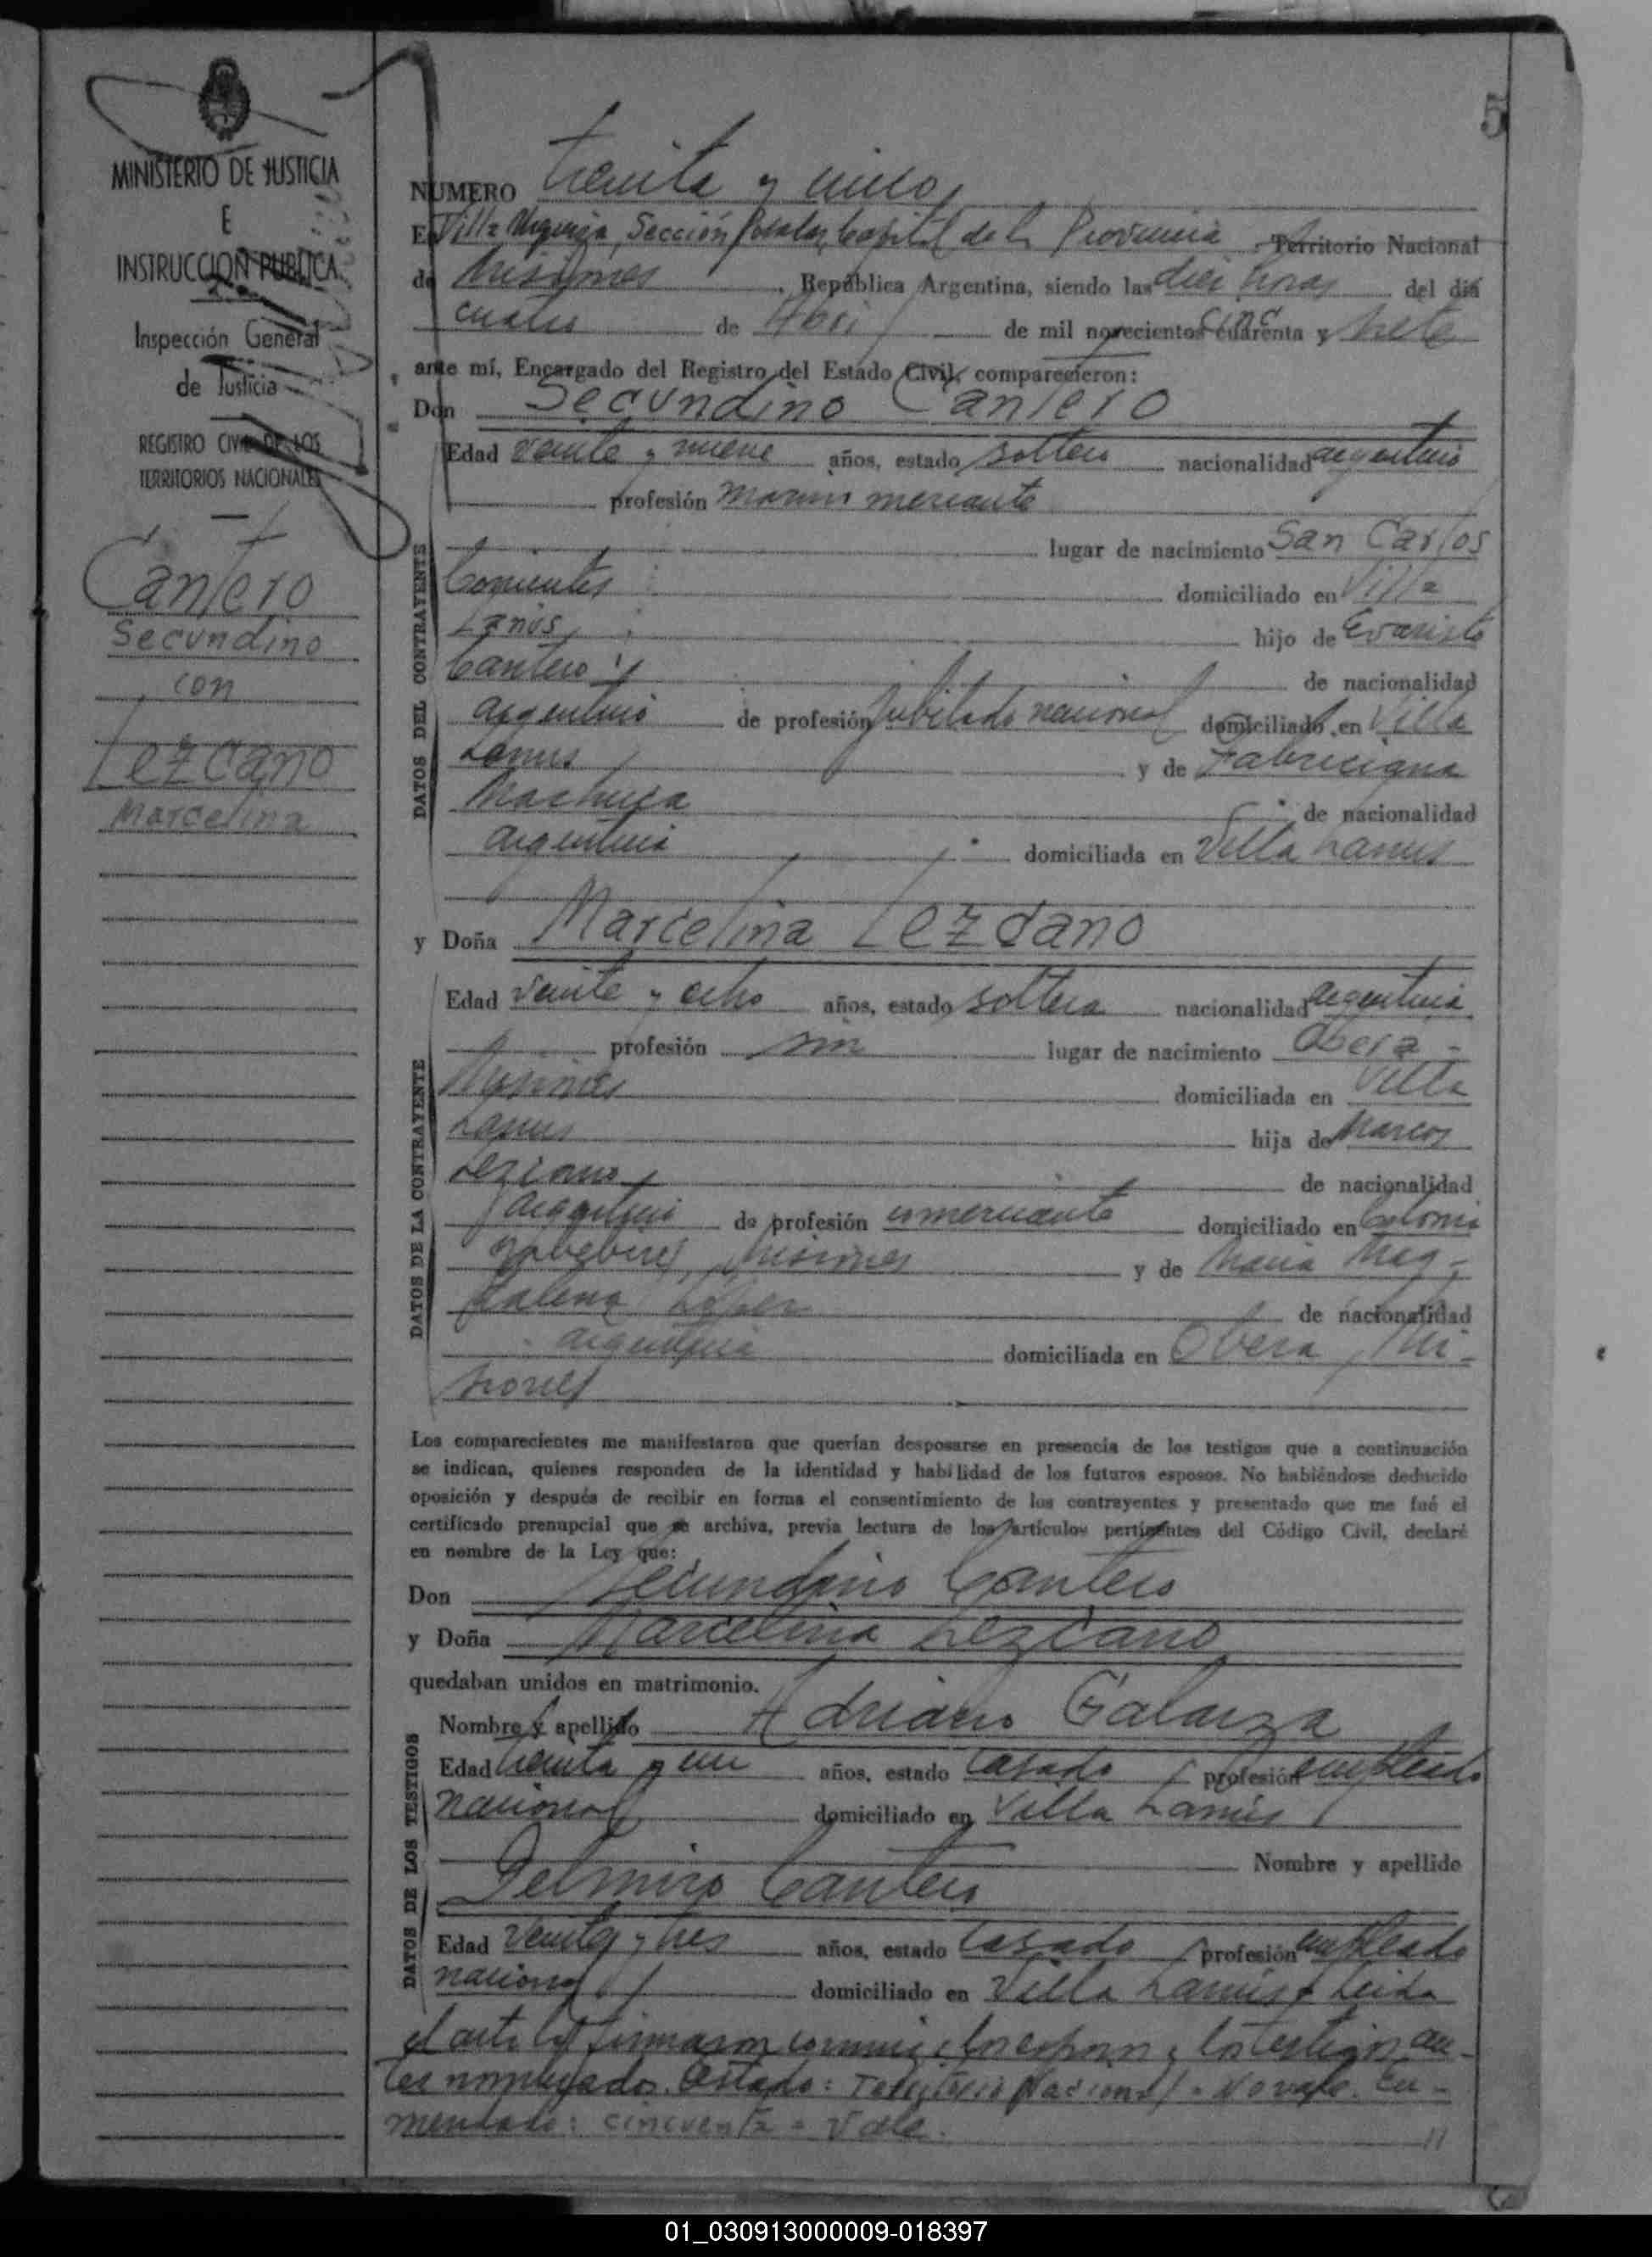 5
MINISTERIO DE JUSTICIA
E
INSTRUCCION PUBLICA
Inspección General
de Justicia
REGISTRO CIVIL DE LOS
TERRITORIOS NACIONALES
Cantero
Secundino
con
Lezcano
Marcelina
NUMERO treinta y cinco
En Villa Urquiza, Sección Posadas, Capital de la Provincia Territorio Nacional
de Misiones, República Argentina, siendo las diez horas del día
cuatro de Abril de mil novecientos cuarenta y siete
ante mí, Encargado del Registro del Estado Civil, comparecieron:
Don Secundino Cantero
DATOS DEL CONTRAYENTE
Edad veinte y nueve años, estado soltero nacionalidad argentino
profesión marino mercante
lugar de nacimiento San Carlos
Corrientes domiciliado en Villa
Lanús, hijo de Evaristo
Cantero de nacionalidad
argentino de profesión jubilado nacional domiciliado en Villa
Lanus y de Fabriciana
Machuca de nacionalidad
argentina domiciliada en Villa Lanus
y Doña Marcelina Lezcano
DATOS DE LA CONTRAYENTE
Edad veinte y ocho años, estado soltera nacionalidad argentina
profesión sin lugar de nacimiento Oberá -
Misiones domiciliada en Villa
Lanus hija de Marcos
Lezcano de nacionalidad
argentino de profesión comerciante domiciliado en Colonia
Yabebiri, Misiones y de Maria Mag-
dalena López de nacionalidad
argentina domiciliada en Obera, Mi-
siones
Los comparecientes me manifestaron que querían desposarse en presencia de los testigos que a continuación
se indican, quienes responden de la identidad y habilidad de los futuros esposos. No habiéndose deducido
oposición y después de recibir en forma el consentimiento de los contrayentes y presentado que me fué el
certificado prenupcial que se archiva, previa lectura de los artículos pertinentes del Código Civil, declaré
en nombre de la Ley que:
Don Secundino Cantero
y Doña Marcelina Lezcano
quedaban unidos en matrimonio.
DATOS DE LOS TESTIGOS
Nombre y apellido Adriano Galarza
Edad treinta y un años, estado casado profesión empleado
nacional domiciliado en Villa Lanús
Nombre y apellido
Delmiro Cantero
Edad veinte y tres años, estado casado profesión empleado
nacional domiciliado en Villa Lanús. Leida
el acta la firmaron conmigo los esposos y los testigos an-
tes nombrados. Testado: Territorio Nacional - No vale. En-
mendado: cincuenta - Vale.
01_030913000009-018397